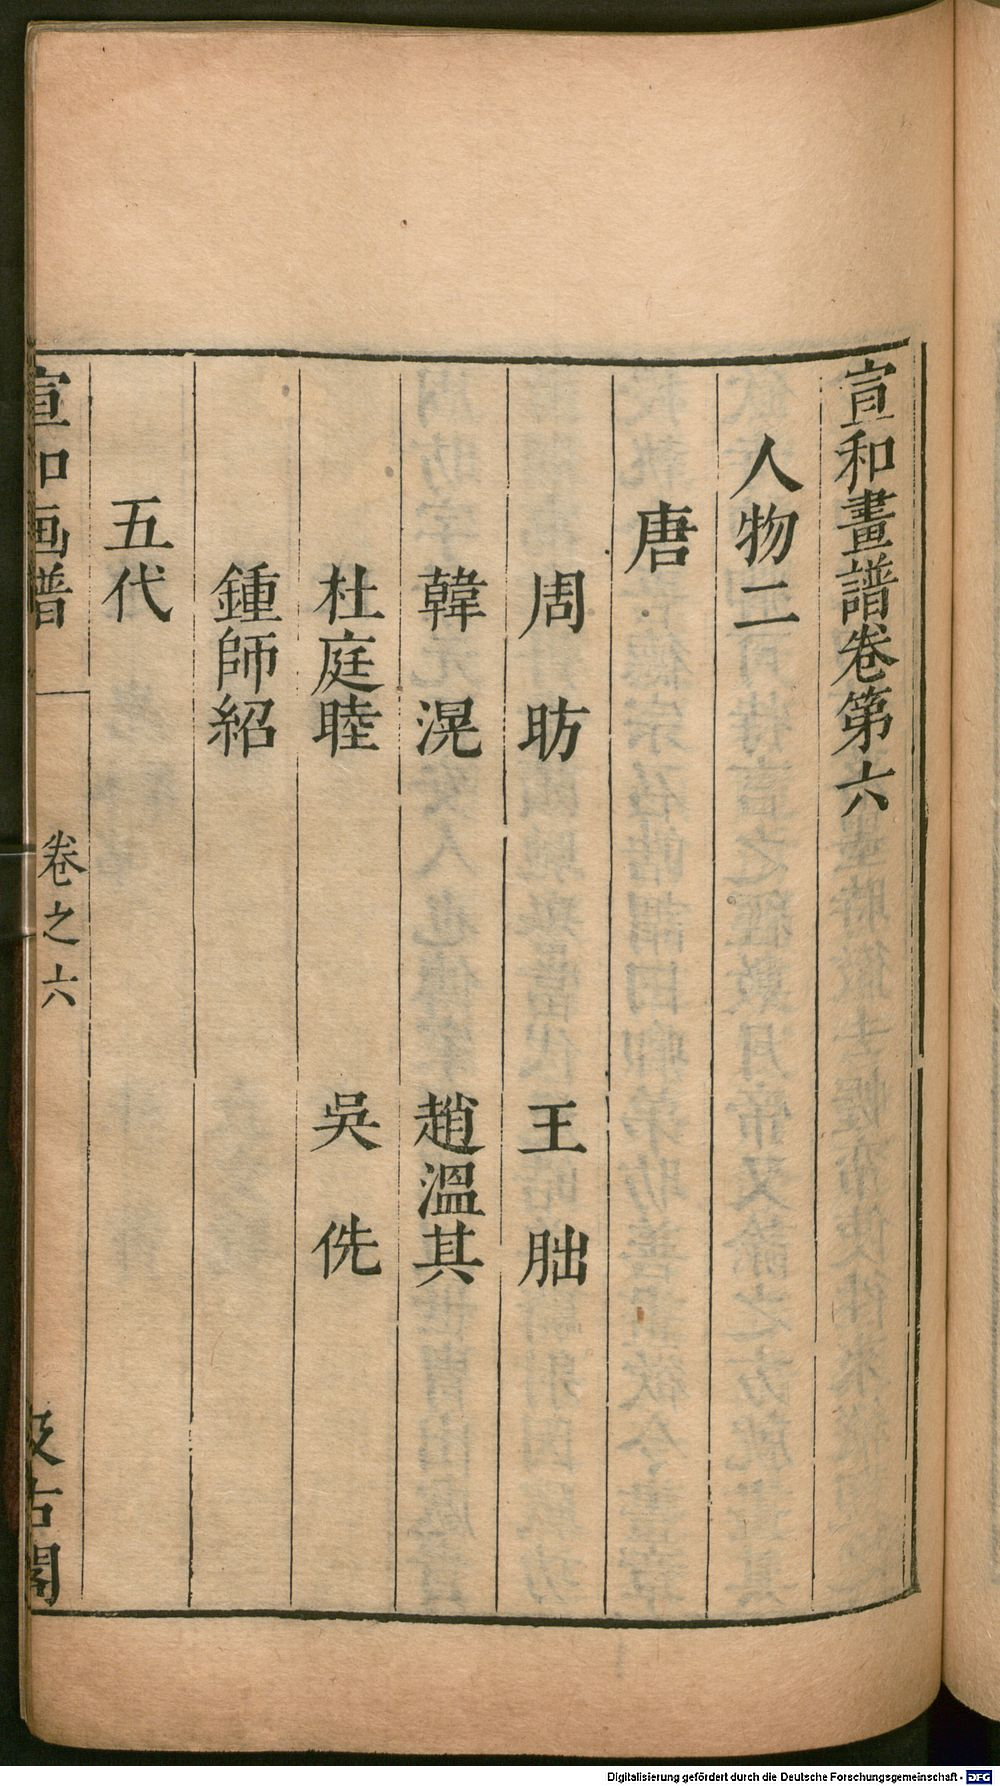 宣和畫譜卷第六
人物二
唐
周昉 王朏
韓滉 趙溫其
杜庭睦 吳侁
鍾師紹
五代
宣和画譜 卷之六 汲古閣
Digitalisierung gefördert durch die Deutsche Forschungsgemeinschaft - DFG